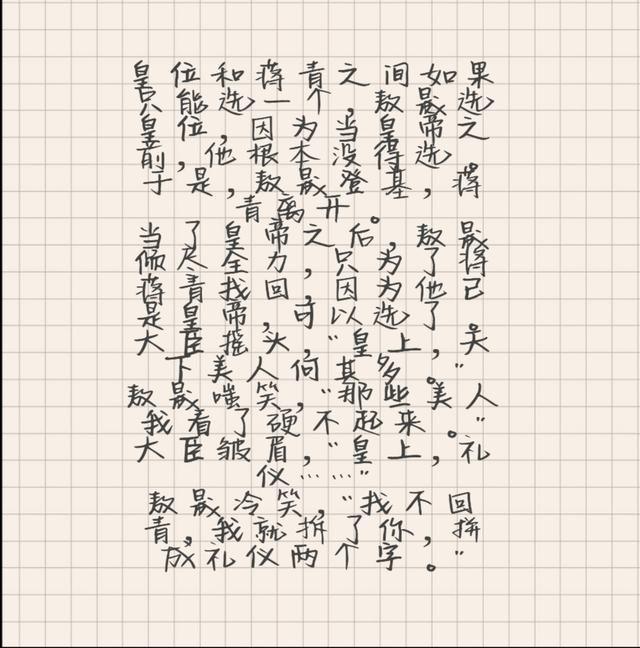 皇位和蒋青之间如果
只能选一个，敖晟选
皇位，因为当皇帝之
前，他根本没得选。
于是，敖晟登基，蒋
青离开。
当了皇帝之后，敖晟
倾尽全力，只为了将
蒋青找回，因为他已
是皇帝，可以选了。
大臣摇头，“皇上，天
下美人何其多。”
敖晟嗤笑，“那些美人
我看了硬不起来。”
大臣皱眉，“皇上，礼
仪……”
敖晟冷笑，“找不回
青，我就拆了你，拼
成礼仪两个字。”